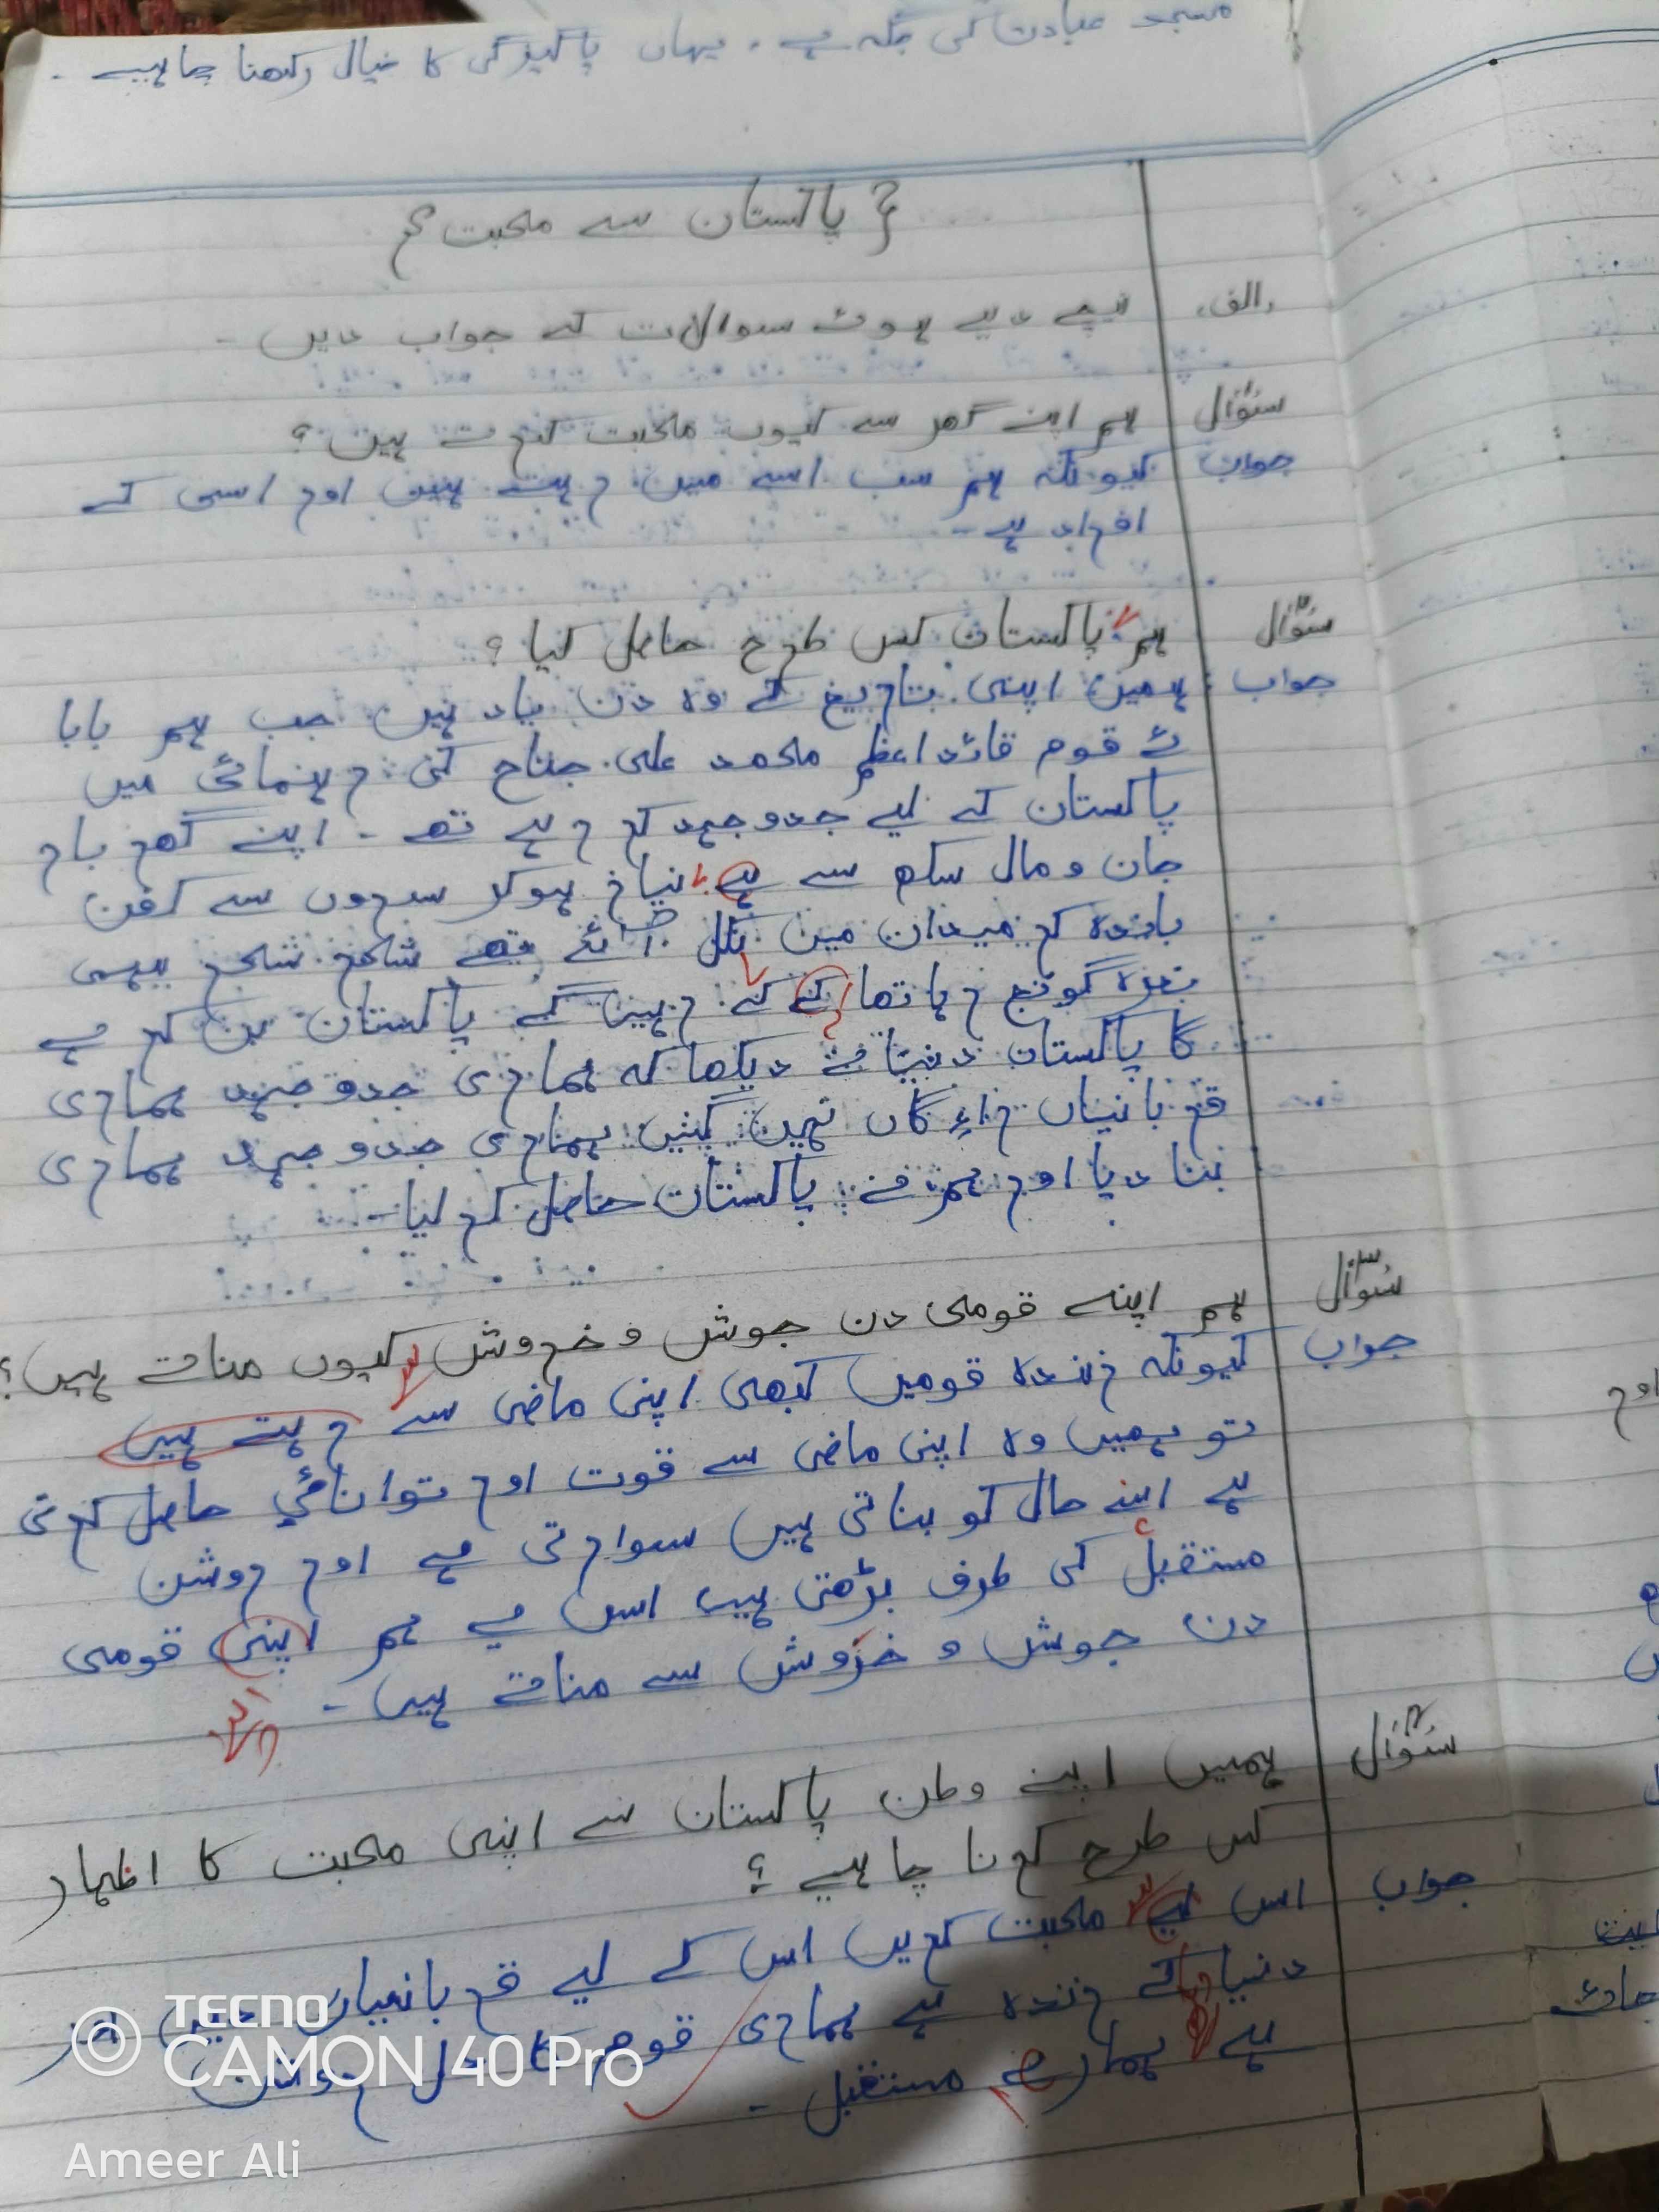 مسجد عبادت کی جگہ ہے ۔ یہاں پاکیزگی کا خیال رکھنا چاہیے ۔
پاکستان سے محبت
الف، نیچے دیے ہوئے سوالات کے جواب دیں ۔
سوال ہم اپنے گھر سے کیوں محبت کرتے ہیں؟
جواب کیونکہ ہم سب اسے میں رہتے ہیں اور اسی کے
افراد ہے ۔
سوال ہم پاکستان کس طرح حاصل کیا ؟
جواب ہمیں اپنی تاریخ کے وہ دن یاد ہیں جب ہم بابا
ئے قوم قائد اعظم محمد علی جناح کی رہنمائی میں
پاکستان کے لیے جدوجہد کر رہے تھے ۔ اپنے گھر بار
جان و مال سکھ سے بے نیاز ہوکر سروں سے کفن
باندہ کر میدان میں نکل آئے تھے
نعرہ گونج رہا تھا کے رہیں گے پاکستان بن کر ہے
گا پاکستان دنیا نے دیکھا کہ ہماری جدوجہد ہماری
قربانیاں رائگاں نہیں گئیں ہماری جدوجہد ہماری
بنا دیا اور ہم نے پاکستان حاصل کر لیا ۔
سوال ہم اپنے قومی دن جوش و خروش کیوں مناتے ہیں؟
جواب کیونکہ زندہ قومیں کبھی اپنی ماضی سے رہتے ہیں
تو ہمیں وہ اپنی ماضی سے قوت اور توانائی حاصل کرتی
ہے اپنے حال کو بناتی ہیں سوارتی ہے اور روشن
مستقبل کی طرف بڑھتی ہیں اس لیے ہم اپنی قومی
دن جوش و خروش سے مناتے ہیں ۔
سوال ہمیں اپنے وطن پاکستان سے اپنی محبت کا اظہار
کس طرح کرنا چاہیے ؟
جواب اس لیے محبت کریں اس کے لیے قربانیاں
دنیا کے زندہ ہے ہماری قوم کا
ہے ہمارے مستقبل ۔
اور
TECNO
CAMON 40 Pro
Ameer Ali